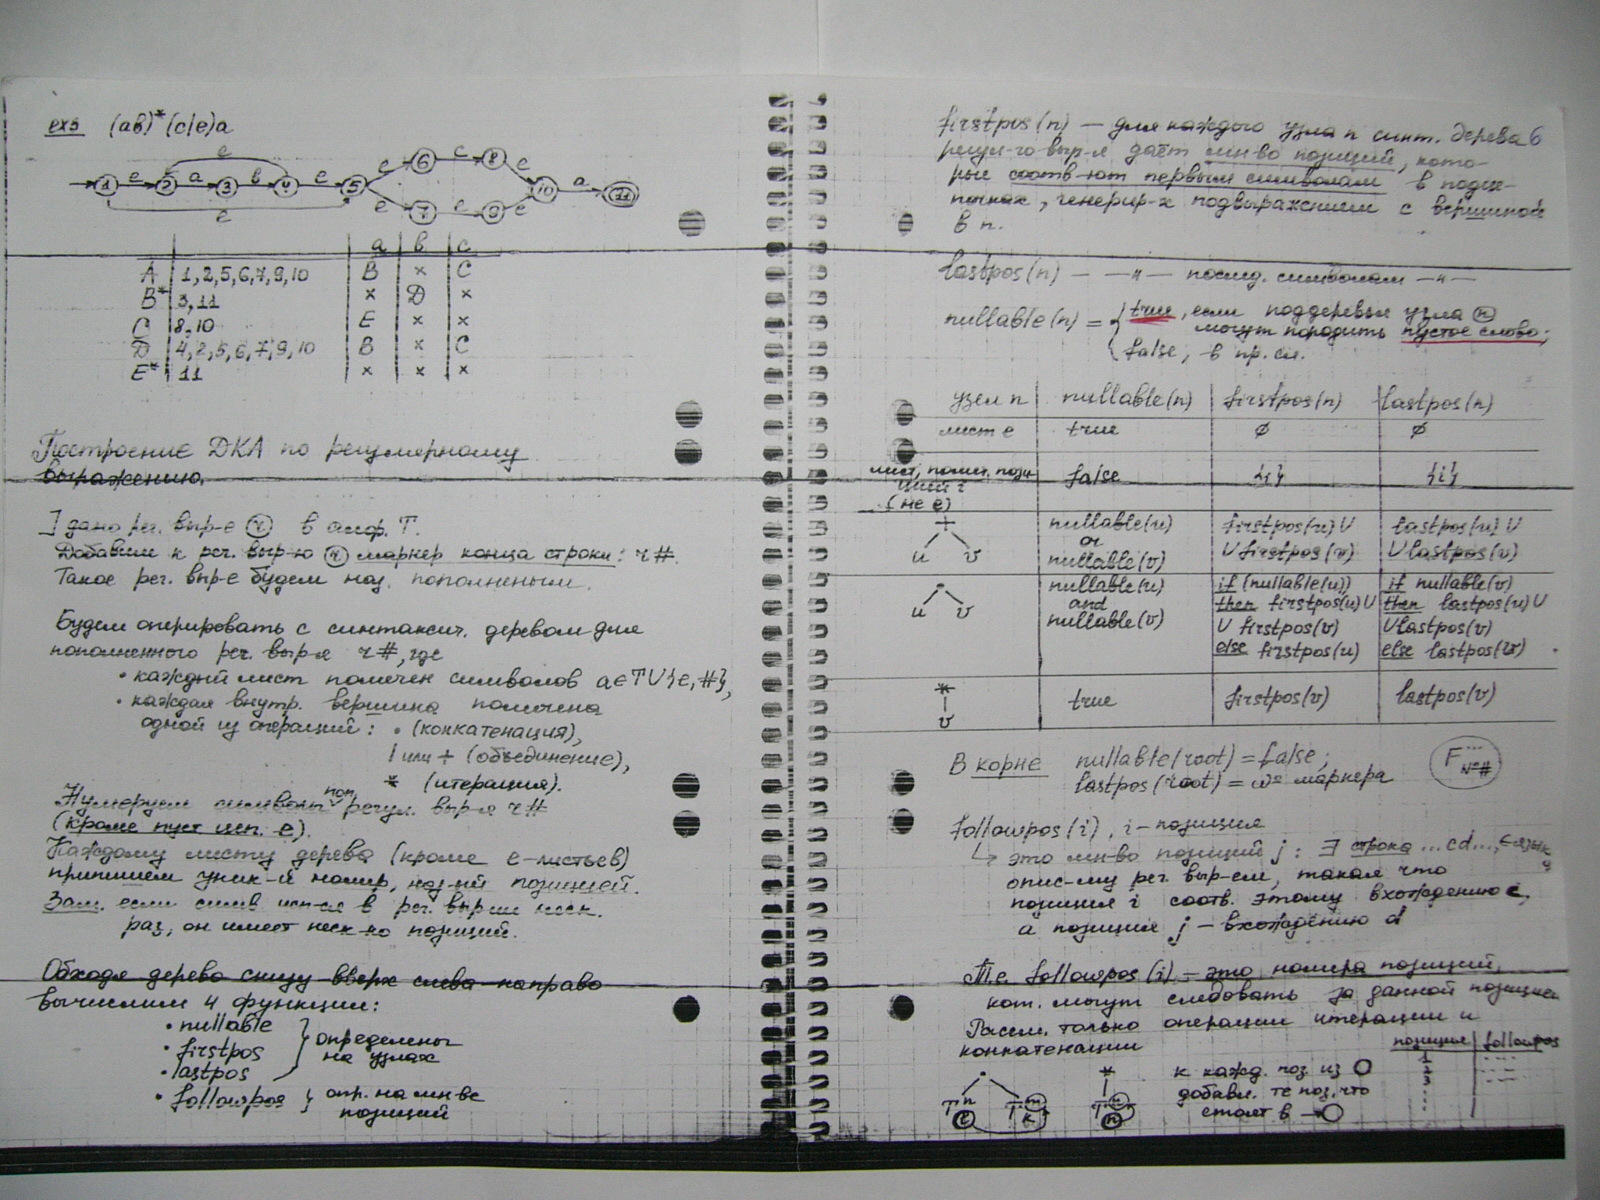 ex3 (aв)*(c/e)a
e
e a в e e c e a
1 2 3 4 5 6 8 10 11
e e e
7 9
e
a в c
A 1,2,5,6,7,9,10 B × C
B* 3,11 × D ×
C 8,10 E × ×
D 4,2,5,6,7,9,10 B × C
E* 11 × × ×
Построение ДКА по регулярному
выражению.
] дано рег. выр-е r в алф. T.
Добавим к рег. выр-ю r маркер конца строки: r#.
Такое рег. выр-е будем наз. пополненым.
Будем оперировать с синтаксич. деревом для
пополненного рег. выр-я r#, где
• каждый лист помечен символов a∈T∪{e,#},
• каждая внутр. вершина помечена
одной из операций: • (конкатенация),
| или + (объединение),
* (итерация).
Нумеруем символы поп. регул. выр-я r#
(кроме пуст цеп. e).
Каждому листу дерева (кроме e-листьев)
припишем уник-й номер, наз-ый позицией.
Зам. если симв исп-ся в рег. выр-ии неск.
раз, он имеет неск-ко позиций.
Обходя дерево снизу вверх слева-направо
вычислим 4 функции:
• nullable
• firstpos
• lastpos
определены
на узлах
• followpos
опр. на мн-ве
позиций
firstpos(n) — для каждого узла n синт. дерева
регул-го выр-я даёт мн-во позиций, кото-
рые соотв-ют первым символам в подце-
почках, генерир-х подвыражением с вершиной
в n.
lastpos(n) — —"— послед. символам —"—
nullable(n) = { true, если поддеревья узла n
могут породить пустое слово;
false, в пр. сл.
узел n nullable(n) firstpos(n) lastpos(n)
лист e true ∅ ∅
лист, помеч. пози- false {i} {i}
цией i
(не e)
+ nullable(u) firstpos(u) ∪ lastpos(u) ∪
or
u v nullable(v) ∪ firstpos(v) ∪ lastpos(v)
• nullable(u) if (nullable(u)) if nullable(v)
and then firstpos(u) ∪ then lastpos(u) ∪
u v nullable(v) ∪ firstpos(v) ∪ lastpos(v)
else firstpos(u) else lastpos(v)
* true firstpos(v) lastpos(v)
v
В корне nullable(root) = false;
lastpos(root) = № маркера
F №#
followpos(i), i - позиция
это мн-во позиций j: ∃ строка ...cd...,
опис-му рег. выр-ем, такая что
позиция i соотв. этому вхождению c,
а позиция j — вхождению d
Т.е. followpos(i) — это номера позиций,
кот. могут следовать за данной позицией
Рассм. только операции итерации и
конкатенации
позиция followpos
1
2
3
• * к кажд. поз. из ○
добавл. те поз. что
стоят в → ○